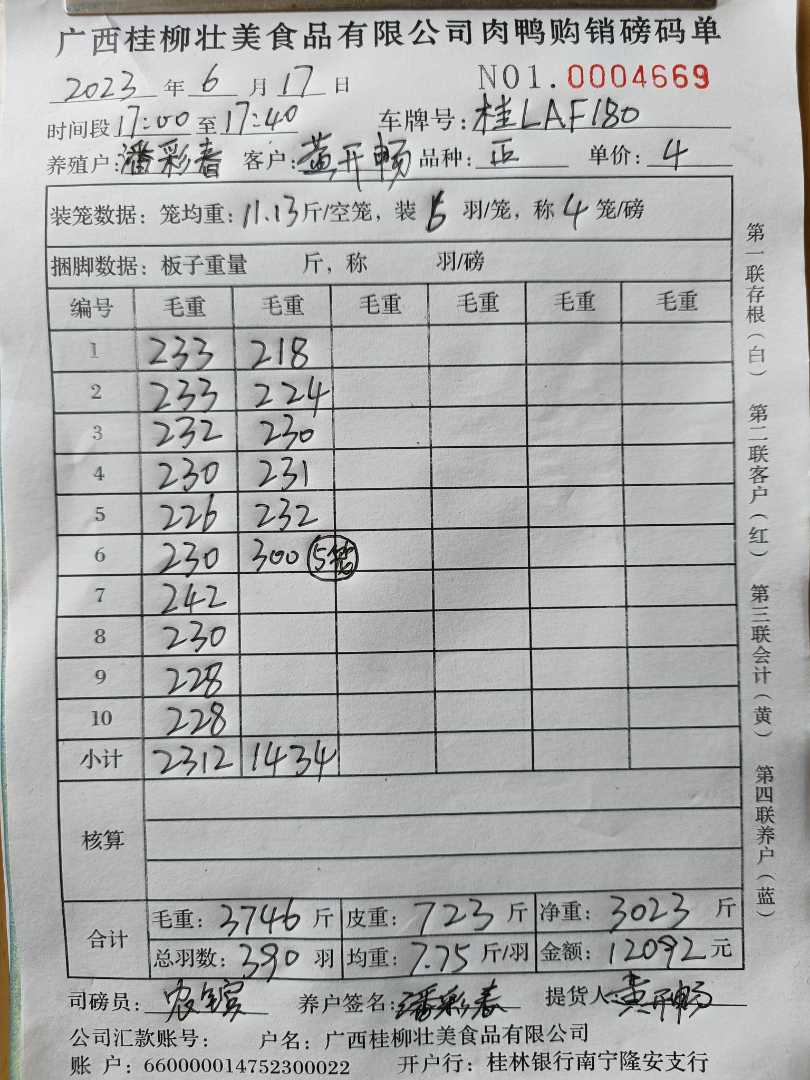 广西桂柳壮美食品有限公司肉鸭购销磅码单
2023年6月17日 NO1.0004669
时间段17:00至17:40 车牌号:桂LAF180
养殖户:潘彩春 客户:黄开畅 品种:正 单价:4
装笼数据:笼均重:11.13斤/空笼,装6羽/笼,称4笼/磅
捆脚数据:板子重量 斤,称 羽/磅
编号 毛重 毛重 毛重 毛重 毛重 毛重
1 233 218
2 233 224
3 232 230
4 230 231
5 226 232
6 230 300 5笼
7 242
8 230
9 228
10 228
小计 2312 1434
核算
合计 毛重:3746斤 皮重:723斤 净重:3023斤
总羽数:390羽 均重:7.75斤/羽 金额:12092元
司磅员: 养户签名:潘彩春 提货人:黄开畅
公司汇款账号: 户名:广西桂柳壮美食品有限公司
账 户:660000014752300022 开户行:桂林银行南宁隆安支行
第一联存根(白) 第二联客户(红) 第三联会计(黄) 第四联养户(蓝)